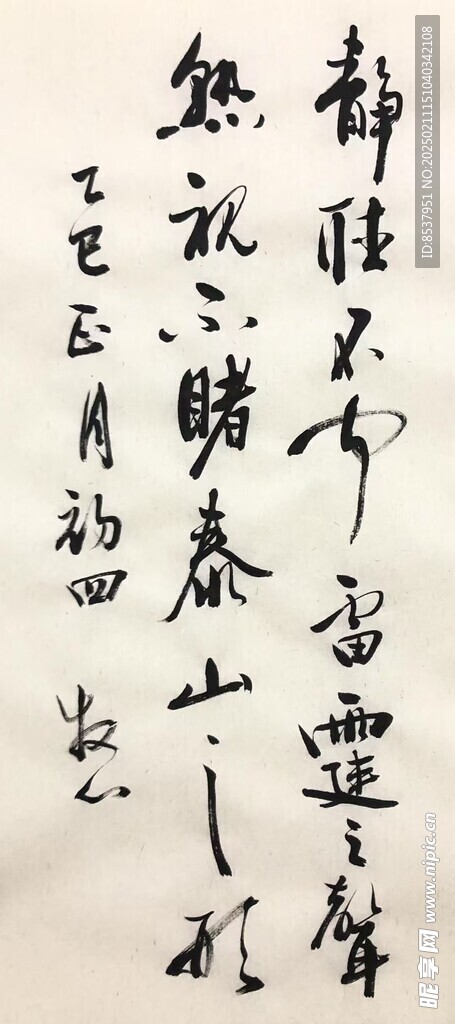 静聽不聞雷霆之聲
熟視不睹泰山之形
乙巳正月初四 牧心
ID:8537951 NO:20250211151040342108
昵享网 www.nipic.cn